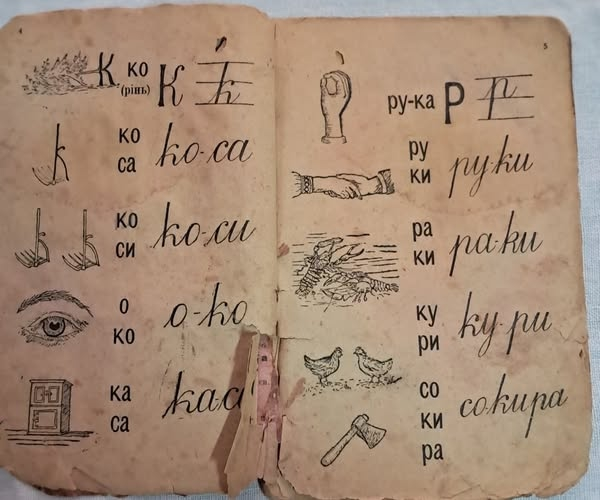 4
К ко К к
(рінь)
ко
са
ко-са
ко
си
ко-си
о
ко
о-ко
ка
са
5
ру-ка Р р
ру
ки
ру-ки
ра
ки
ра-ки
ку
ри
ку-ри
со
ки
ра
со-ки-ра